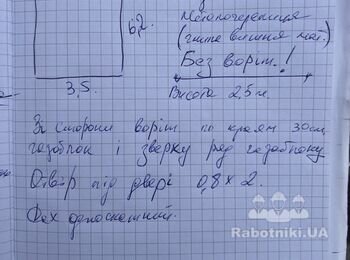 6,2.
Металочерепиця
(
Без воріт!
3,5.
Висота 2,5 м.
Зі сторони воріт по краям 30 см
газоблок і зверху ряд газоблоку
Отвір під двері 0,8 x 2.
Дах односкатний.
Rabotniki.UA